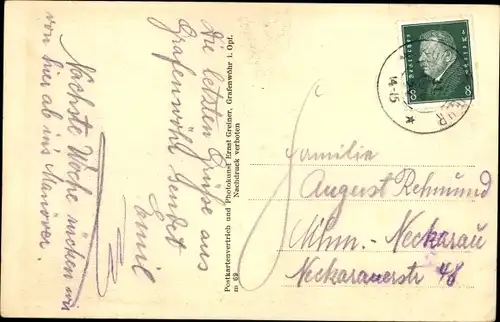 Die letzten Grüße aus
Grafenwöhr sendet
Emil
Nächste Woche rücken wir
von hier ab in's Manöver.
Postkartenvertrieb und Photokunst Ernst Greiner, Grafenwöhr i. Opf.
Nachdruck verboten
m 69
8 8
14-15
Familie
August Rehmund
Mhm.-Neckarau
Neckarauerstr 48